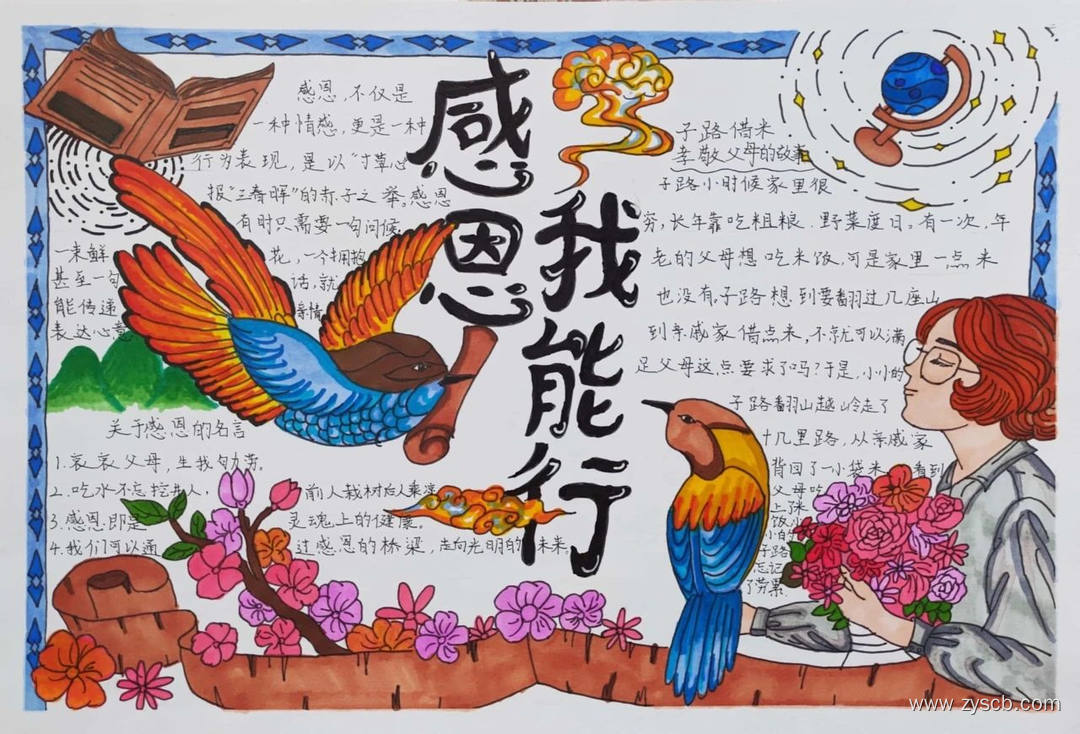 感恩
我能行
感恩,不仅是
一种情感,更是一种
行为表现,是以“寸草心
报“三春晖”的赤子之举。感恩
有时只需要一句问候,
一束鲜 花,一个拥抱
甚至一句 话,就
能传递 亲情
表达心意
关于感恩的名言
1.哀哀父母,生我匈劳。
2.吃水不忘挖井人, 前人栽树后人乘凉
3.感恩即是 灵魂上的健康。
4.我们可以通 过感恩的桥梁,走向光明的 未来。
子路借米
孝敬父母的故事
子路小时候家里很
穷,长年靠吃粗粮、野菜度日。有一次,年
老的父母想吃米饭,可是家里一点米
也没有,子路想到要翻过几座山
到亲戚家借点米,不就可以满
足父母这点要求了吗?于是,小小的
子路翻山越岭走了
十几里路,从亲戚家
背回了一小袋米,看到
父母吃
上了米
饭,小
小的
子路
忘记
了劳累。
www.zyscb.com